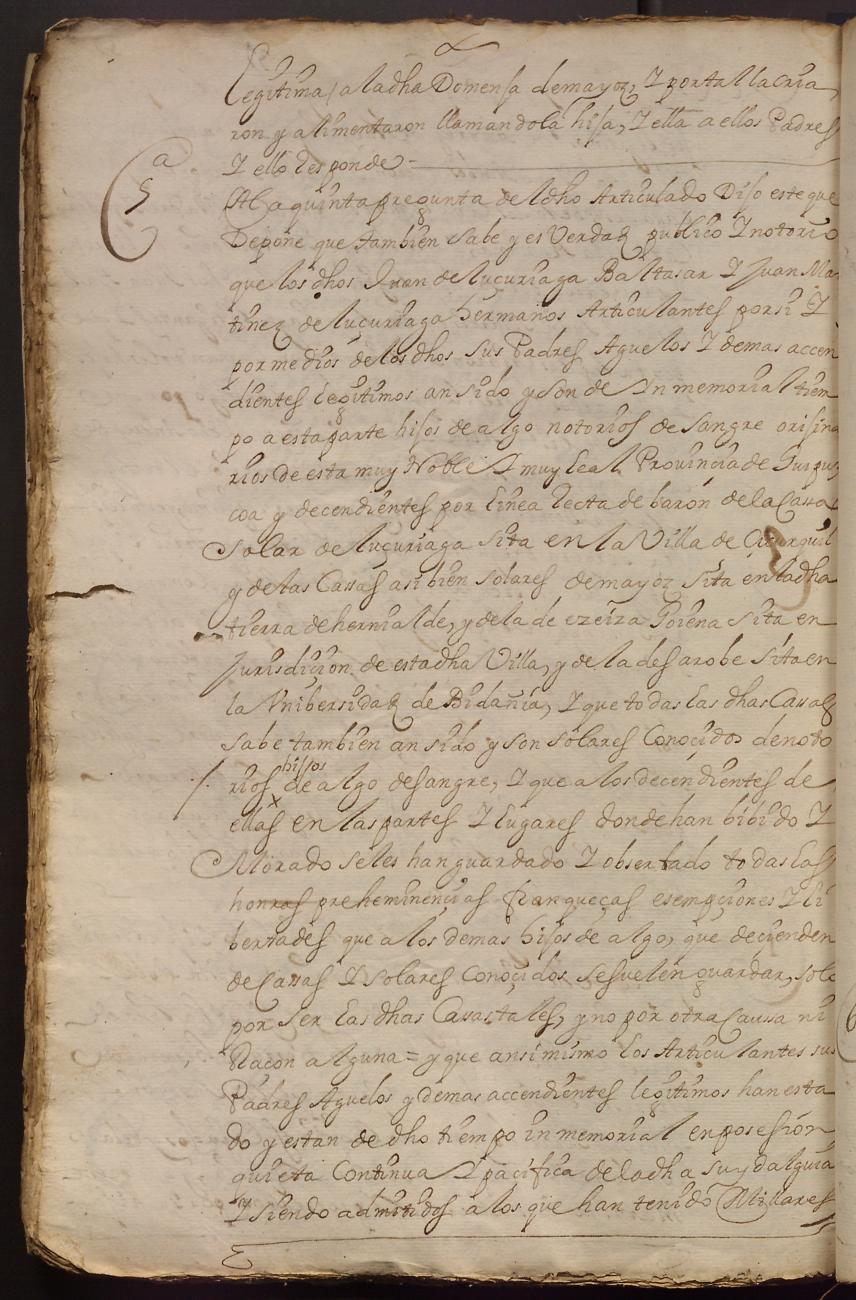 Legitima a la dha Domensa de mayoz, Y por tal la cria
ron y alimentaron llamandola hija, Y ella a ellos Padres
Y ello responde
5ª
A La quinta pregunta de el dho Articulado Dijo este que
Depone que tambien save y es Verdad publico Y notorio
que los dhos Juan de luçuriaga Baltasar Y Juan Ma
tinez de luçuriaga hermanos Articulantes por si Y
por medios de los dhos sus Padres Aguelos Y demas accen
dientes legitimos an sido y son de Inmemorial tiem
po a esta parte hijos de algo notorios de sangre orijina
rios de esta muy Noble Y muy Leal Provincia de Guipuz
coa y decendientes por linea recta de baron de la Cassa
Solar de luçuriaga sita en la Villa de
y de las Cassas asi bien solares de mayoz sita en la dha
tierra de hernialde, y de la de ezeiza Goiena sita en
Jurisdicion de esta dha Villa, y de la de sarobe sita en
la Vnibersidad de Bidania, Y que todas las dhas Cassas
save tambien an sido y son solares Conocidos de noto
rios hijos de algo de sangre, Y que a los decendientes de
ellas en las partes Y lugares donde han bibido Y
Morado se les han guardado Y observado todas las
honras preheminençias franqueças esempçiones Y li
bertades que a los demas hijos de algo, que decienden
de Cassas Y Solares Conoçidos se suelen guardar, solo
por ser las dhas Casas tales, y no por otra Caussa ni
Raçon alguna = y que ansi mismo los Articulantes sus
Padres Aguelos y demas accendientes legitimos han esta
do y estan de dho tiempo inmemorial en posesion
quieta Continua Y pacifica de la dha su ydalguia
Y siendo admitidos a los que han tenido Millares